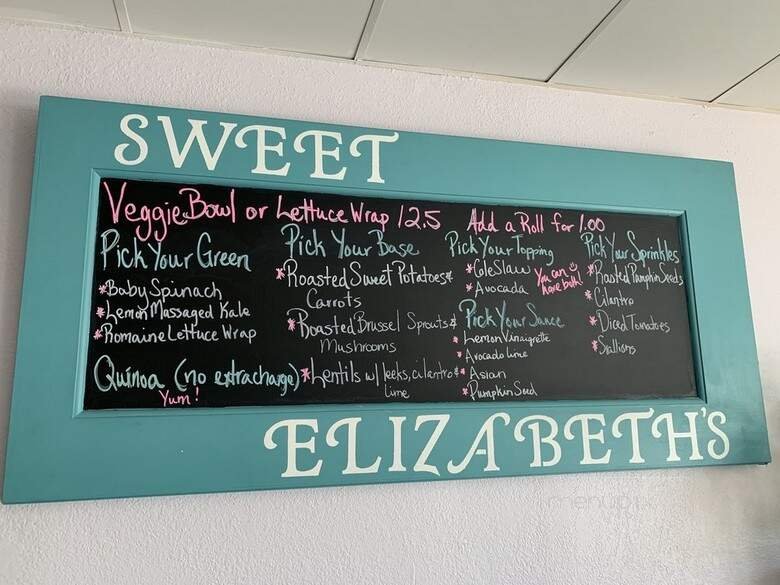 SWEET
Veggie Bowl or Lettuce Wrap 12.5 Add a Roll for 1.00
Pick Your Green
*Baby Spinach
*Lemon Massaged Kale
*Romaine Lettuce Wrap
Quinoa (no extra charge)
Yum!
Pick Your Base
*Roasted Sweet Potatoes &
Carrots
*Roasted Brussel Sprouts &
Mushrooms
*Lentils w/ leeks, cilantro &
lime
Pick Your Topping
*Cole Slaw
*Avocada
You can
have both!
Pick Your Sauce
*Lemon Vinaigrette
*Avocado Lime
*Asian
*Pumpkin Seed
Pick Your Sprinkles
*Roasted Pumpkin Seeds
*Cilantro
*Diced Tomatoes
*Scallions
ELIZABETH'S